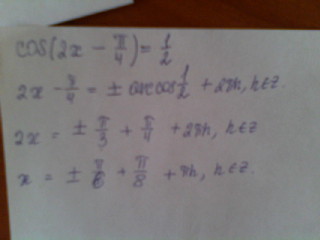 cos(2x - π/4) = 1/2
2x - π/4 = ± arccos 1/2 + 2πn, n∈z.
2x = ± π/3 + π/4 + 2πn, n∈z
x = ± π/6 + π/8 + πn, n∈z.